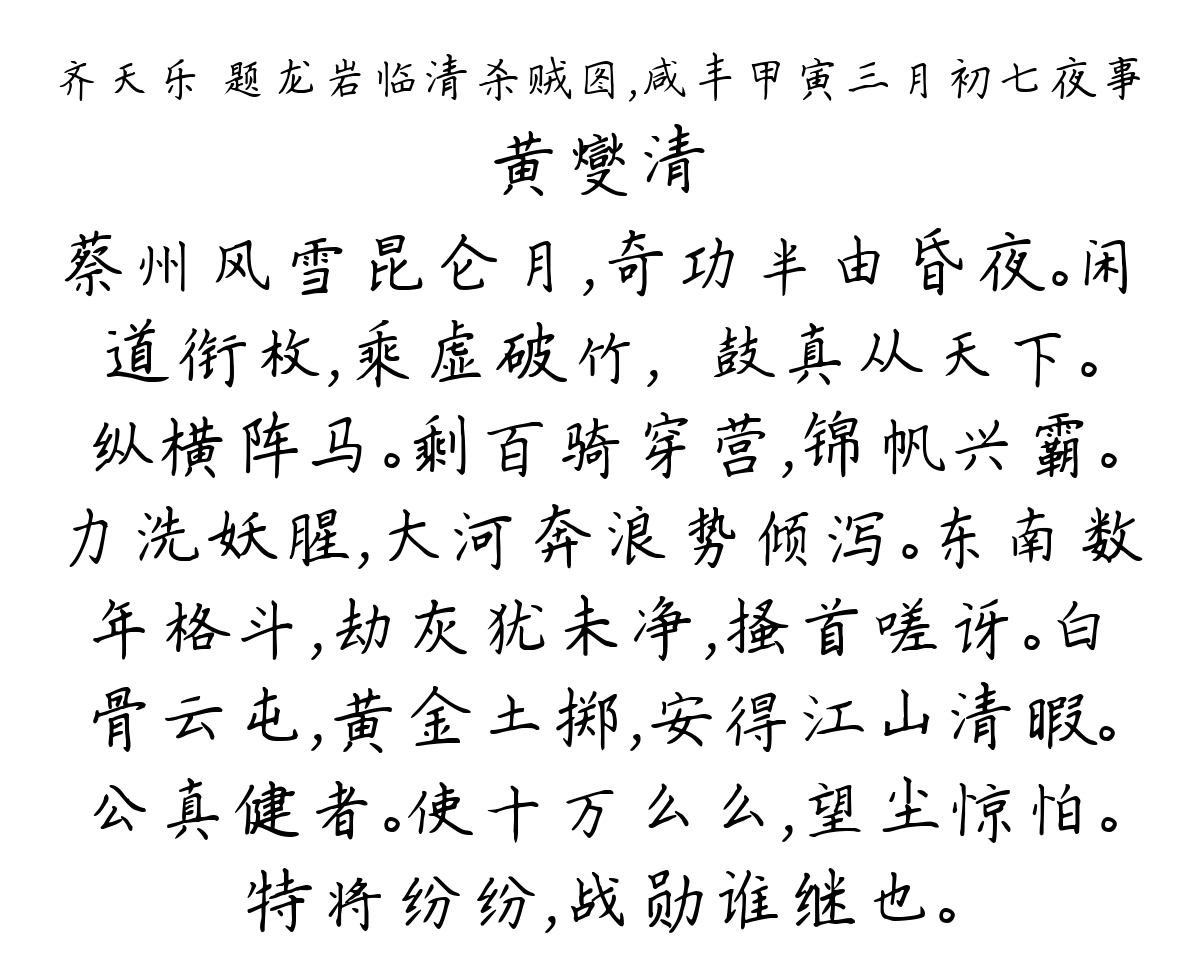 齐天乐 题龙岩临清杀贼图,咸丰甲寅三月初七夜事
黄燮清
蔡州风雪昆仑月,奇功半由昏夜。闲
道衔枚,乘虚破竹，鼓真从天下。
纵横阵马。剩百骑穿营,锦帆兴霸。
力洗妖腥,大河奔浪势倾泻。东南数
年格斗,劫灰犹未净,搔首嗟讶。白
骨云屯,黄金土掷,安得江山清暇。
公真健者。使十万么么,望尘惊怕。
特将纷纷,战勋谁继也。